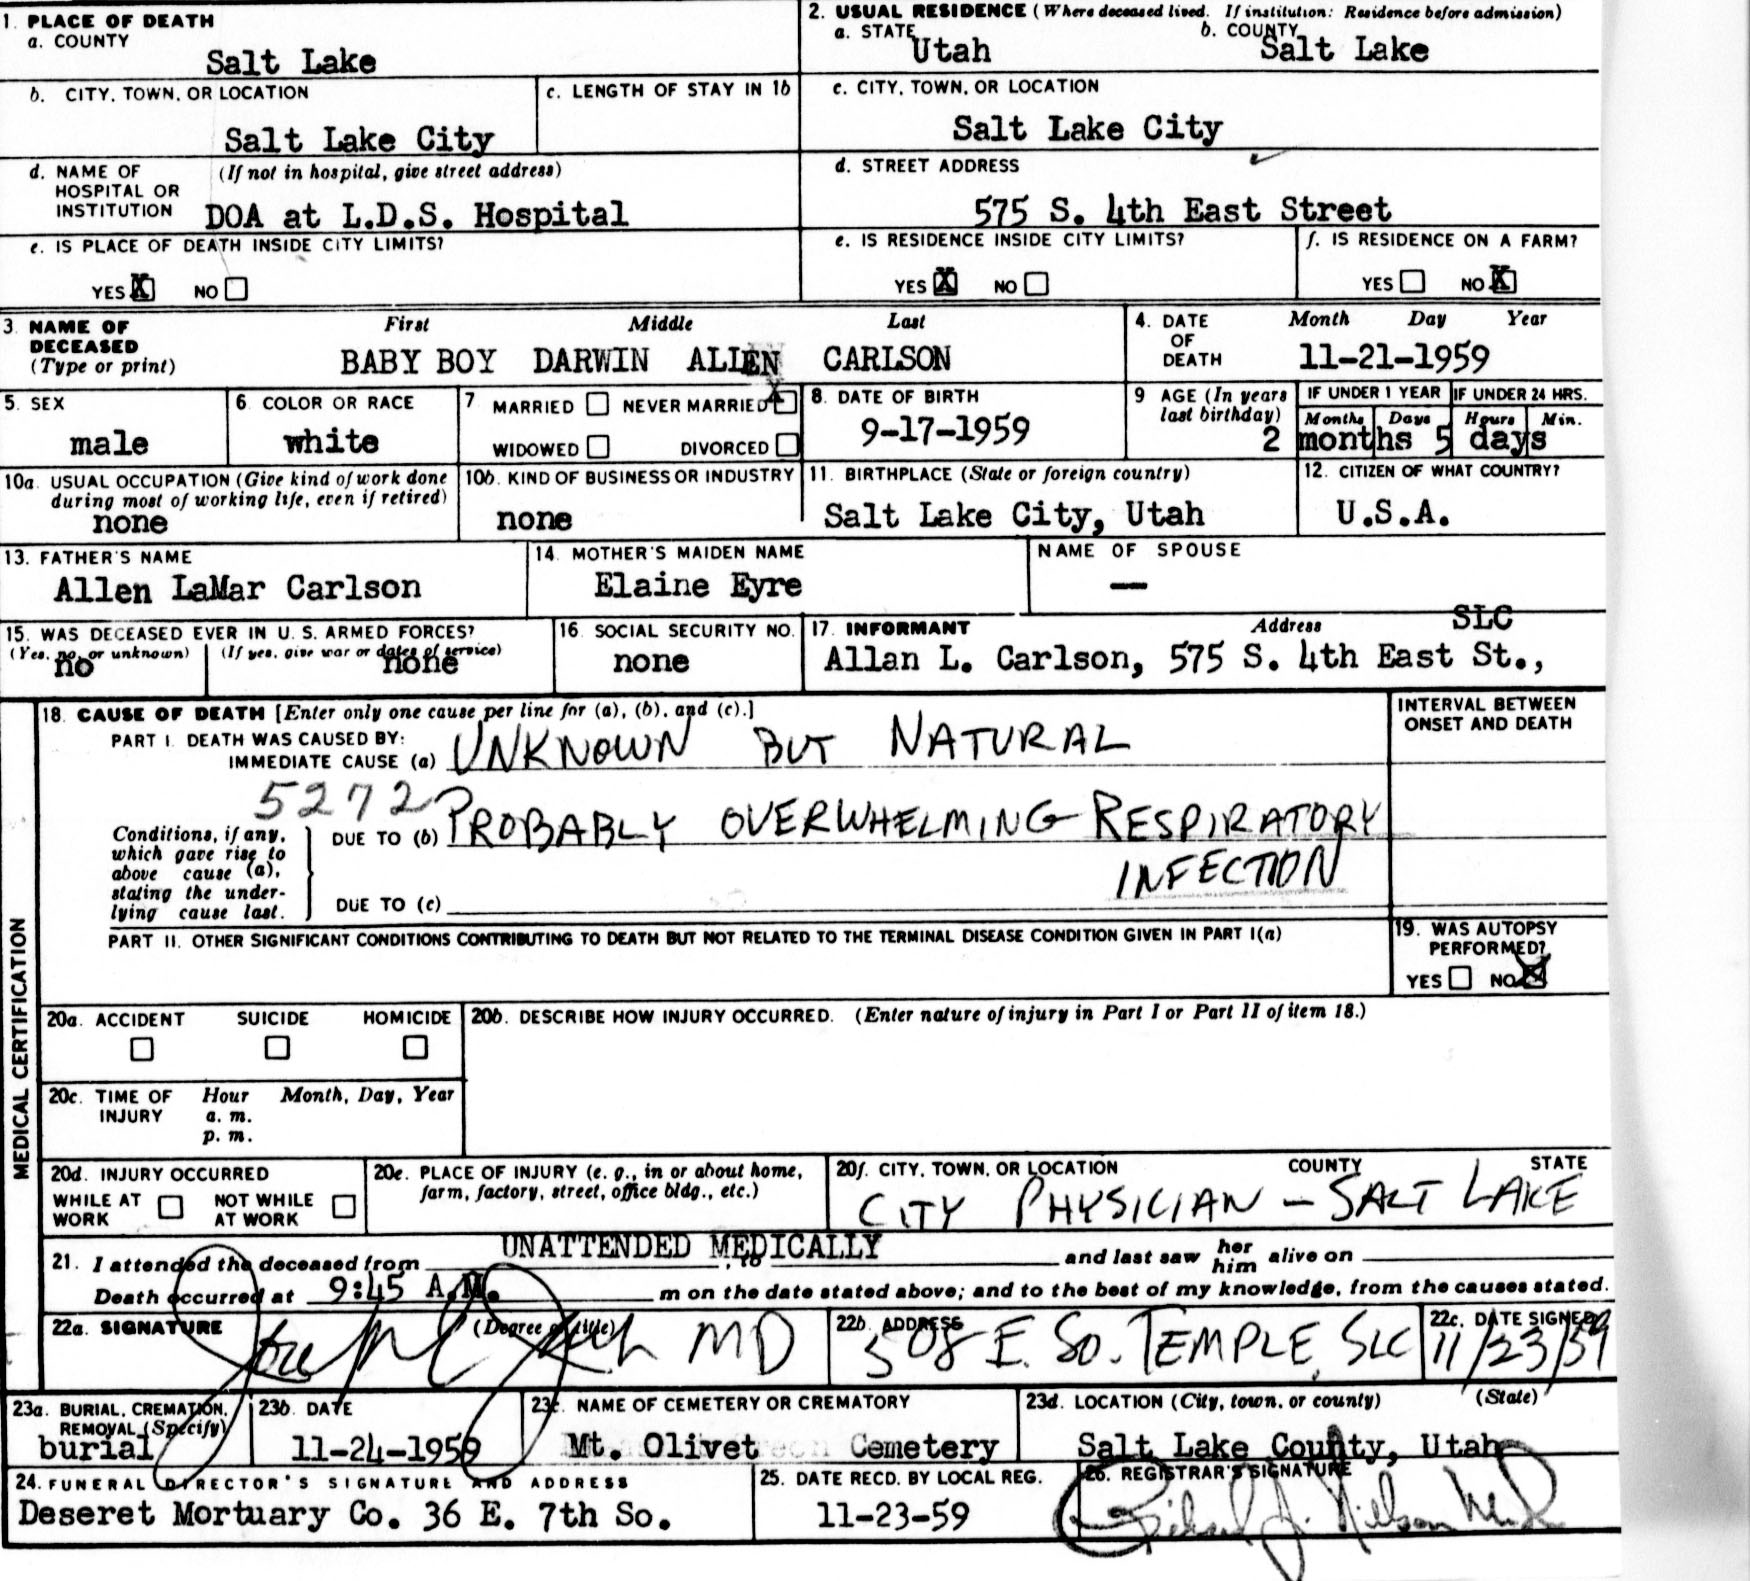 1. PLACE OF DEATH
a. COUNTY
Salt Lake
2. USUAL RESIDENCE (Where deceased lived. If institution: Residence before admission)
a. STATE
Utah
b. COUNTY
Salt Lake
b. CITY, TOWN, OR LOCATION
Salt Lake City
c. LENGTH OF STAY IN 1b
c. CITY, TOWN, OR LOCATION
Salt Lake City
d. NAME OF HOSPITAL OR INSTITUTION
(If not in hospital, give street address)
DOA at L.D.S. Hospital
d. STREET ADDRESS
575 S. 4th East Street
e. IS PLACE OF DEATH INSIDE CITY LIMITS?
YES X NO
e. IS RESIDENCE INSIDE CITY LIMITS?
YES X NO
f. IS RESIDENCE ON A FARM?
YES NO X
3. NAME OF DECEASED
(Type or print)
First Middle Last
BABY BOY DARWIN ALLEN CARLSON
4. DATE OF DEATH
Month Day Year
11-21-1959
5. SEX
male
6. COLOR OR RACE
white
7. MARRIED NEVER MARRIED X
WIDOWED DIVORCED
8. DATE OF BIRTH
9-17-1959
9. AGE (In years last birthday)
IF UNDER 1 YEAR IF UNDER 24 HRS.
Months Days Hours Min.
2 months 5 days
10a. USUAL OCCUPATION (Give kind of work done during most of working life, even if retired)
none
10b. KIND OF BUSINESS OR INDUSTRY
none
11. BIRTHPLACE (State or foreign country)
Salt Lake City, Utah
12. CITIZEN OF WHAT COUNTRY?
U.S.A.
13. FATHER'S NAME
Allen LaMar Carlson
14. MOTHER'S MAIDEN NAME
Elaine Eyre
NAME OF SPOUSE
—
15. WAS DECEASED EVER IN U. S. ARMED FORCES?
(Yes, no, or unknown) (If yes, give war or dates of service)
no none
16. SOCIAL SECURITY NO.
none
17. INFORMANT Address
SLC
Allan L. Carlson, 575 S. 4th East St.,
MEDICAL CERTIFICATION
18. CAUSE OF DEATH [Enter only one cause per line for (a), (b), and (c).]
INTERVAL BETWEEN ONSET AND DEATH
PART I. DEATH WAS CAUSED BY:
IMMEDIATE CAUSE (a) UNKNOWN BUT NATURAL
5272
Conditions, if any, which gave rise to above cause (a), stating the underlying cause last.
DUE TO (b) PROBABLY OVERWHELMING RESPIRATORY
INFECTION
DUE TO (c)
PART II. OTHER SIGNIFICANT CONDITIONS CONTRIBUTING TO DEATH BUT NOT RELATED TO THE TERMINAL DISEASE CONDITION GIVEN IN PART I(a)
19. WAS AUTOPSY PERFORMED?
YES NO X
20a. ACCIDENT SUICIDE HOMICIDE
20b. DESCRIBE HOW INJURY OCCURRED. (Enter nature of injury in Part I or Part II of item 18.)
20c. TIME OF INJURY
Hour Month, Day, Year
a. m.
p. m.
20d. INJURY OCCURRED
WHILE AT WORK NOT WHILE AT WORK
20e. PLACE OF INJURY (e. g., in or about home, farm, factory, street, office bldg., etc.)
20f. CITY, TOWN, OR LOCATION COUNTY STATE
CITY PHYSICIAN - SALT LAKE
UNATTENDED MEDICALLY
21. I attended the deceased from , to and last saw her him alive on
Death occurred at 9:45 A.M. m on the date stated above; and to the best of my knowledge, from the causes stated.
22a. SIGNATURE (Degree or title)
MD
22b. ADDRESS
508 E. SO. TEMPLE, SLC
22c. DATE SIGNED
11/23/59
23a. BURIAL, CREMATION, REMOVAL (Specify)
burial
23b. DATE
11-24-1959
23c. NAME OF CEMETERY OR CREMATORY
Mt. Olivet Cemetery
23d. LOCATION (City, town, or county) (State)
Salt Lake County, Utah
24. FUNERAL DIRECTOR'S SIGNATURE AND ADDRESS
Deseret Mortuary Co. 36 E. 7th So.
25. DATE RECD. BY LOCAL REG.
11-23-59
26. REGISTRAR'S SIGNATURE
Richard J. Nielson